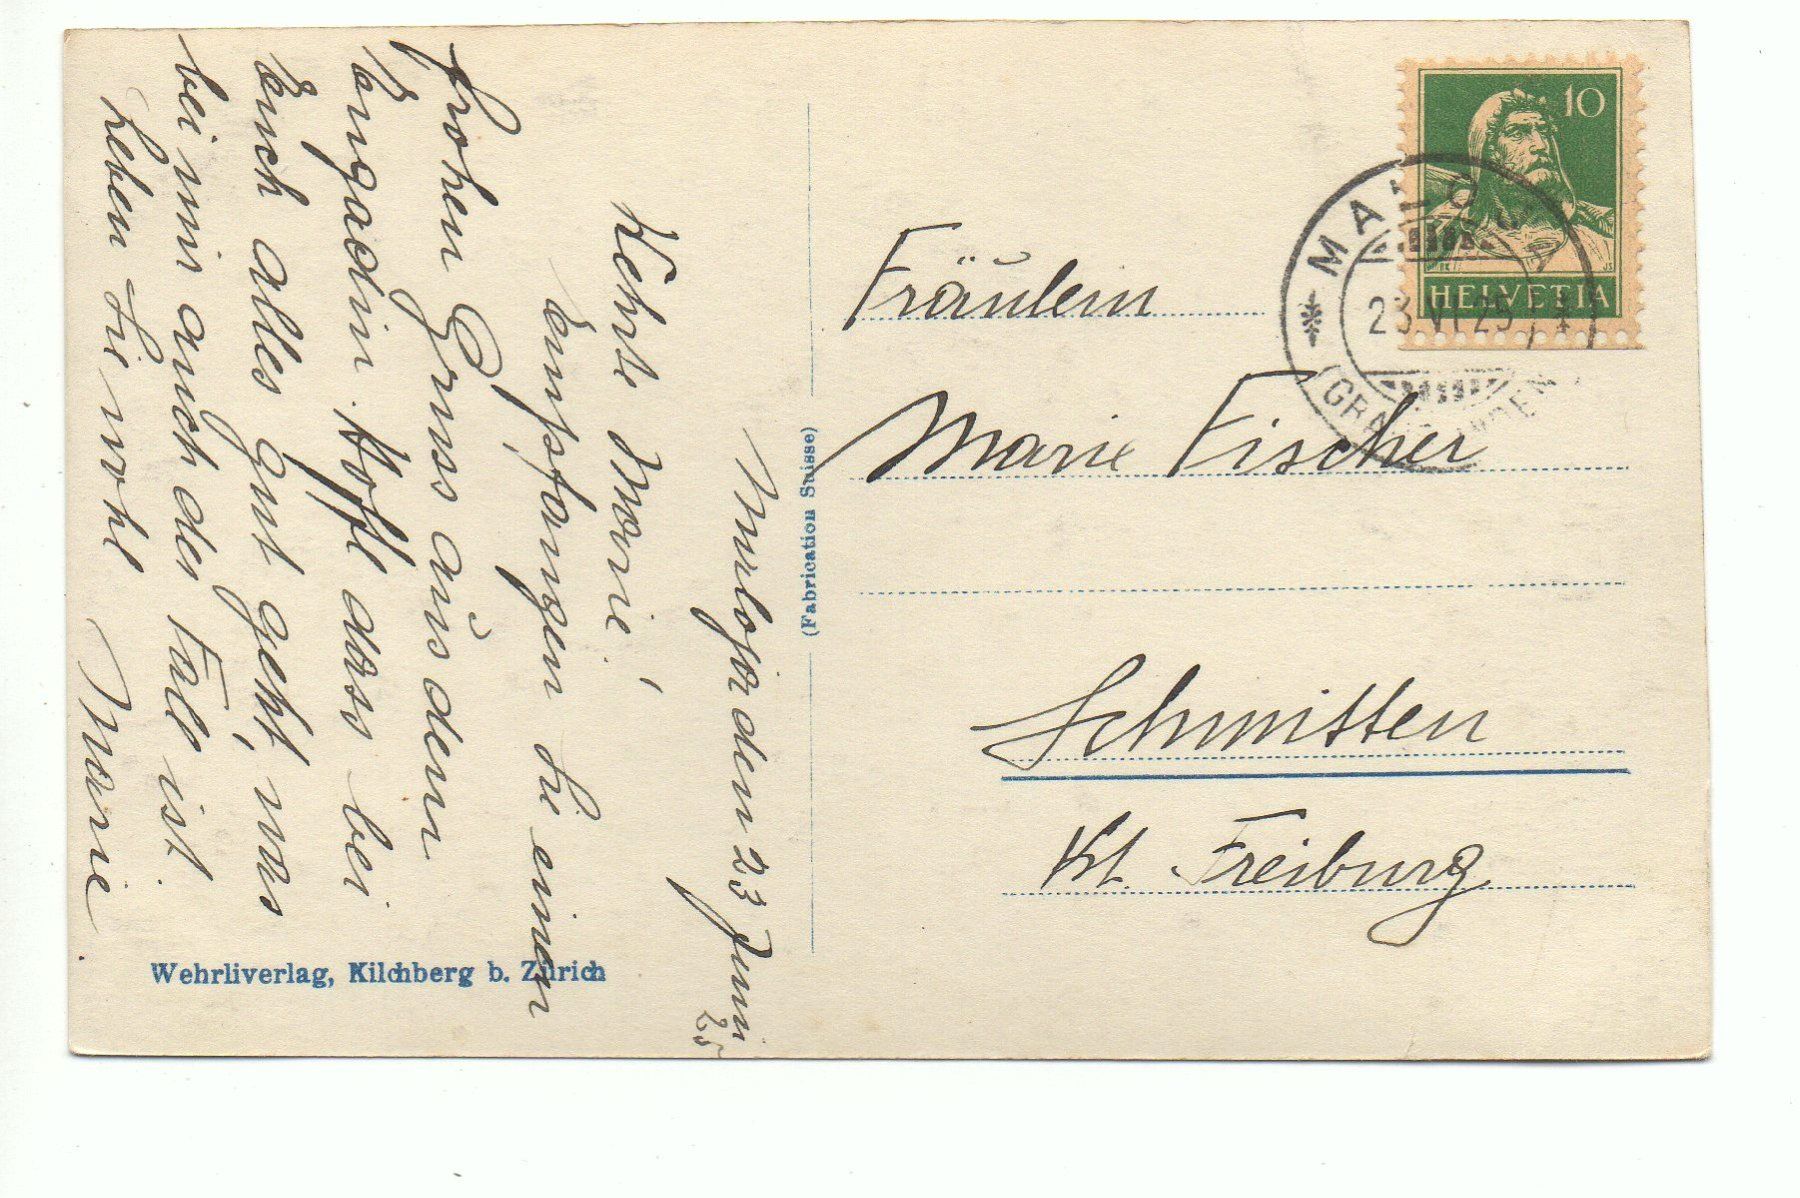 den 23 Juni
25
Werte Marie!
Empfangen Sie einen
frohen Gruss aus dem
Engadin. Hoffe dass bei
Euch alles gut geht, was
bei mir auch der Fall ist.
Leben Sie wohl
Marie
(Fabrication Suisse)
Wehrliverlag, Kilchberg b. Zürich
10
HELVETIA
MALOJA
23.VI.25
(GRAUBÜNDEN)
Fräulein
Marie Fischer
Schmitten
Kt. Freiburg